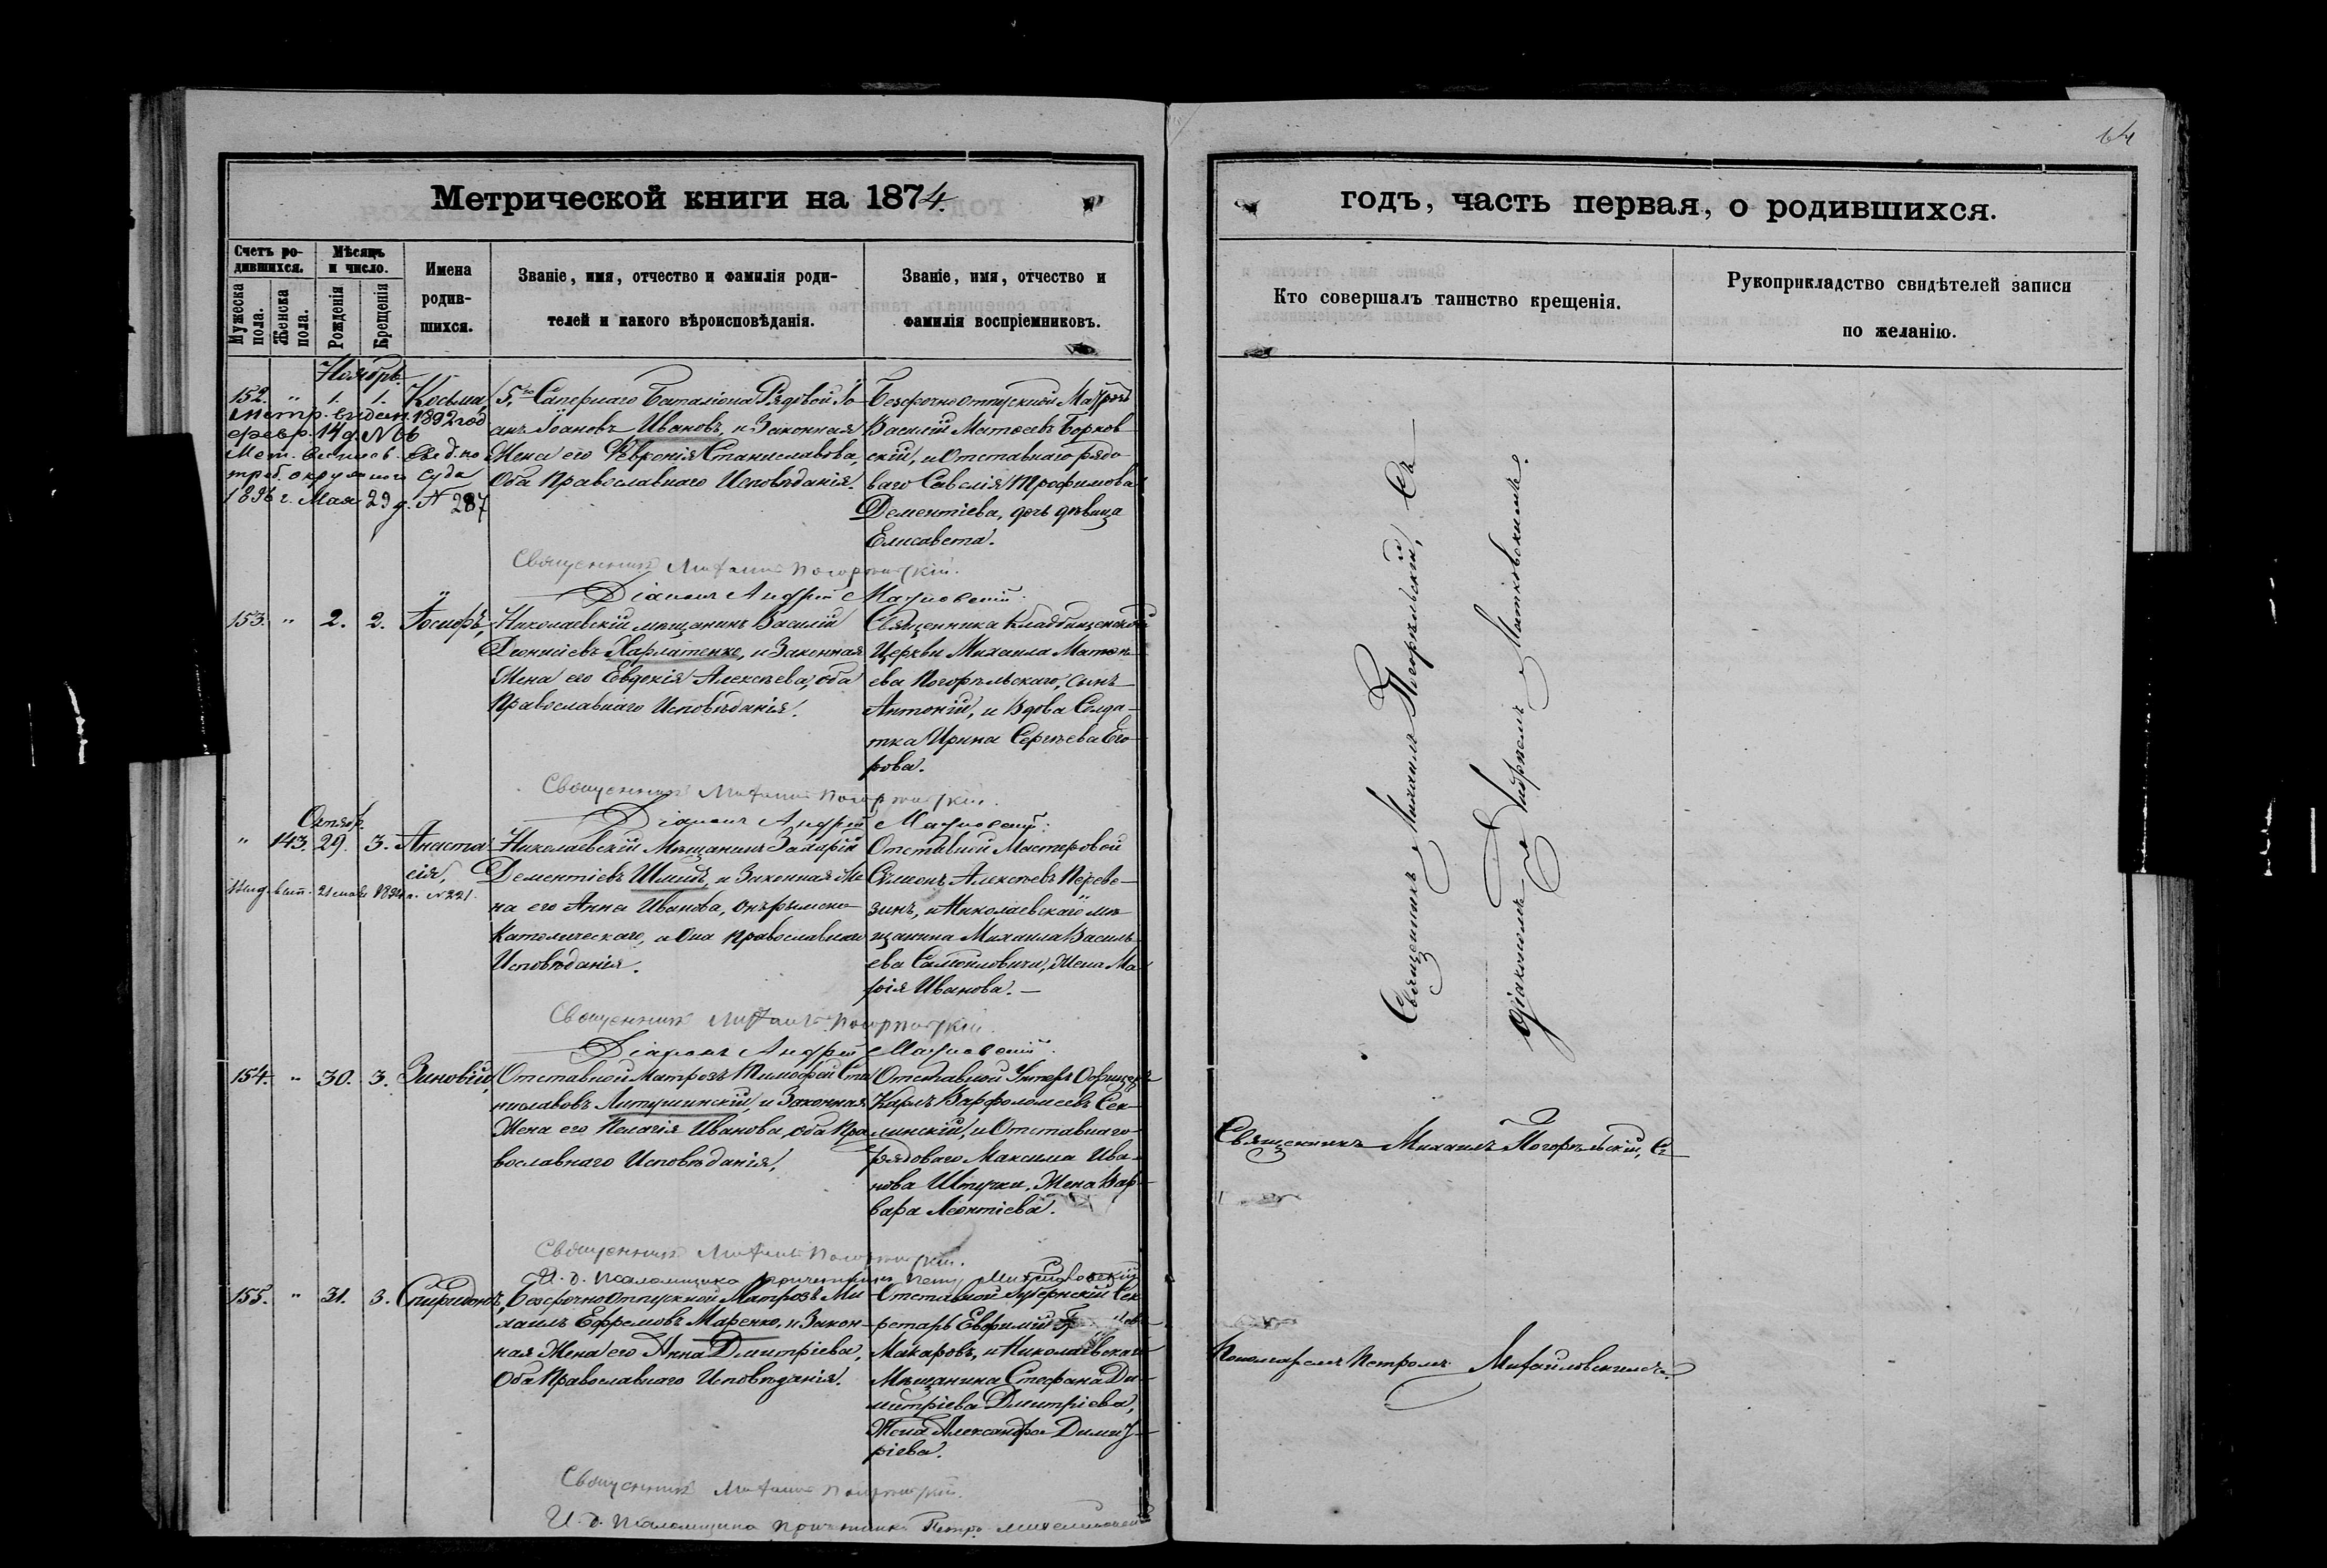 64
Метрической книги на 1874.
годъ, часть первая, о родившихся.
Счетъ ро-
дившихся.
Мужеска
пола.
Женска
пола.
Мѣсяцъ
и число.
Рожденія
Крещенія
Имена
родив-
шихся.
Званіе, имя, отчество и фамилія роди-
телей и какого вѣроисповѣданія.
Званіе, имя, отчество и
фамилія воспріемниковъ.
Кто совершалъ таинство крещенія.
Рукоприкладство свидѣтелей записи
по желанію.
Ноябрь
152. " 1. 1. Косьма,
метр. 1892 год
февр. 14 д. №
треб. окружного суда
1896 г. Мая 29 д. № 287
5го Сапернаго Баталіона Рядовой Іо-
анъ Іоановъ Ивановъ, и Законная
Жена его Февронія Станиславова,
Оба Православнаго Исповѣданія.
Безсрочноотпускной Матрозъ
Василій Матѳеевъ Борков-
скій, и Отставнаго рядо-
ваго Савелія Трофимова
Дементіева, дочь дѣвица
Елисавета.
Священникъ Михаилъ Погорѣльскій.
Діаконъ Андрей
153. " 2. 2. Іосифъ,
Николаевскій мѣщанинъ Василій
Харлатенко, и Законная
Жена его Евдокія Алексѣева, оба
Православнаго Исповѣданія.
Священника Кладбищенской
Церкви Михаила Матѳѣ-
ева Погорѣльскаго, сынъ
Антоній, и Вдова Солда-
тка Ирина Сергѣева Его-
рова.
Священникъ Михаилъ Погорѣльскій.
Діаконъ Андрей
Октяб.
" 143. 29. 3. Анаста-
сія,
21 мая № 221
Николаевскій Мѣщанинъ Захарій
Дементіевъ и Законная Же-
на его Анна Иванова, онъ римско-
Католическаго, а Она Православнаго
Исповѣданія.
Отставной Мастеровой
Симеонъ Алексѣевъ Переве-
зинъ, и Николаевскаго мѣ-
щанина Михаила Василь-
ева Самойловичи, Жена Ма-
рія Иванова.
Священникъ Михаилъ Погорѣльскій.
Діаконъ Андрей
154. " 30. 3. Зиновій,
Отставной Матрозъ Тимофей Ста-
ниславовъ Литушинскій, и Законная
Жена его Пелагія Иванова, оба Пра-
вославнаго Исповѣданія.
Отставной Унтеръ Офицеръ
Карлъ Варфоломеевъ Сек-
линскій, и Отставнаго
рядоваго Максима Ива-
нова Штучки, Жена Вар-
вара Леонтіева.
Священникъ Михаилъ Погорѣльскій.
И. д. Псаломщика причетникъ Петръ Михайловскій
155. " 31. 3. Спиридонъ,
Безсрочноотпускной Матрозъ Ми-
хаилъ Ефремовъ Маренко, и Закон-
ная Жена его Анна Дмитріева,
Оба Православнаго Исповѣданія.
Отставной Губернскій Сек-
ретарь Евфимій
Макаровъ, и Николаевскаго
Мѣщанина Стефана Ди-
митріева Дмитріева,
Жена Александра Димит-
ріева.
Священникъ Михаилъ Погорѣльскій.
И. д. Псаломщика Причетникъ Петръ Михайловскій
Священникъ Михаилъ Погорѣльскій, Съ
Діакономъ Андреемъ
Священникъ Михаилъ Погорѣльскій, Съ
Пономаремъ Петромъ Михайловскимъ.